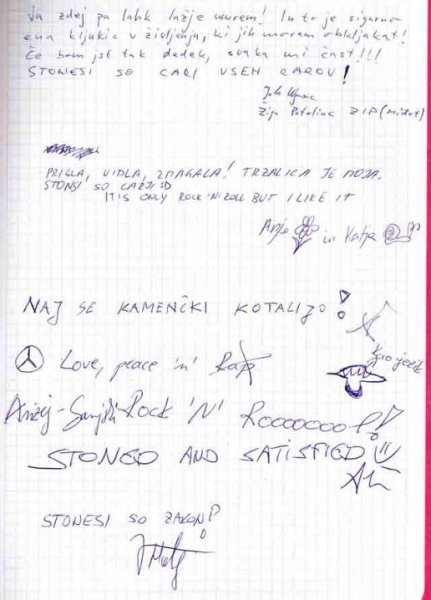 Ja zdej pa lahk lažje umrem! In to je sigurno
ena kljukic v življenju, ki jih moram obkljukat!
Če bom jst tak dedek, svaka mi čast!!!
STONESI SO CARI VSEH CAROV!
Žiga
ŽIPA (Mišot)
PRIŠLA, VIDLA, ZMAGALA! TRZALICA JE MOJA.
STONSI SO CARJI :D
IT'S ONLY ROCK 'N' ROLL BUT I LIKE IT
Anja in Katja
NAJ SE KAMENČKI KOTALIJO!
Love, peace 'n' Rap
Rock 'N' Rooooooool!
STONED AND SATISFIED
STONESI SO ZAKON!